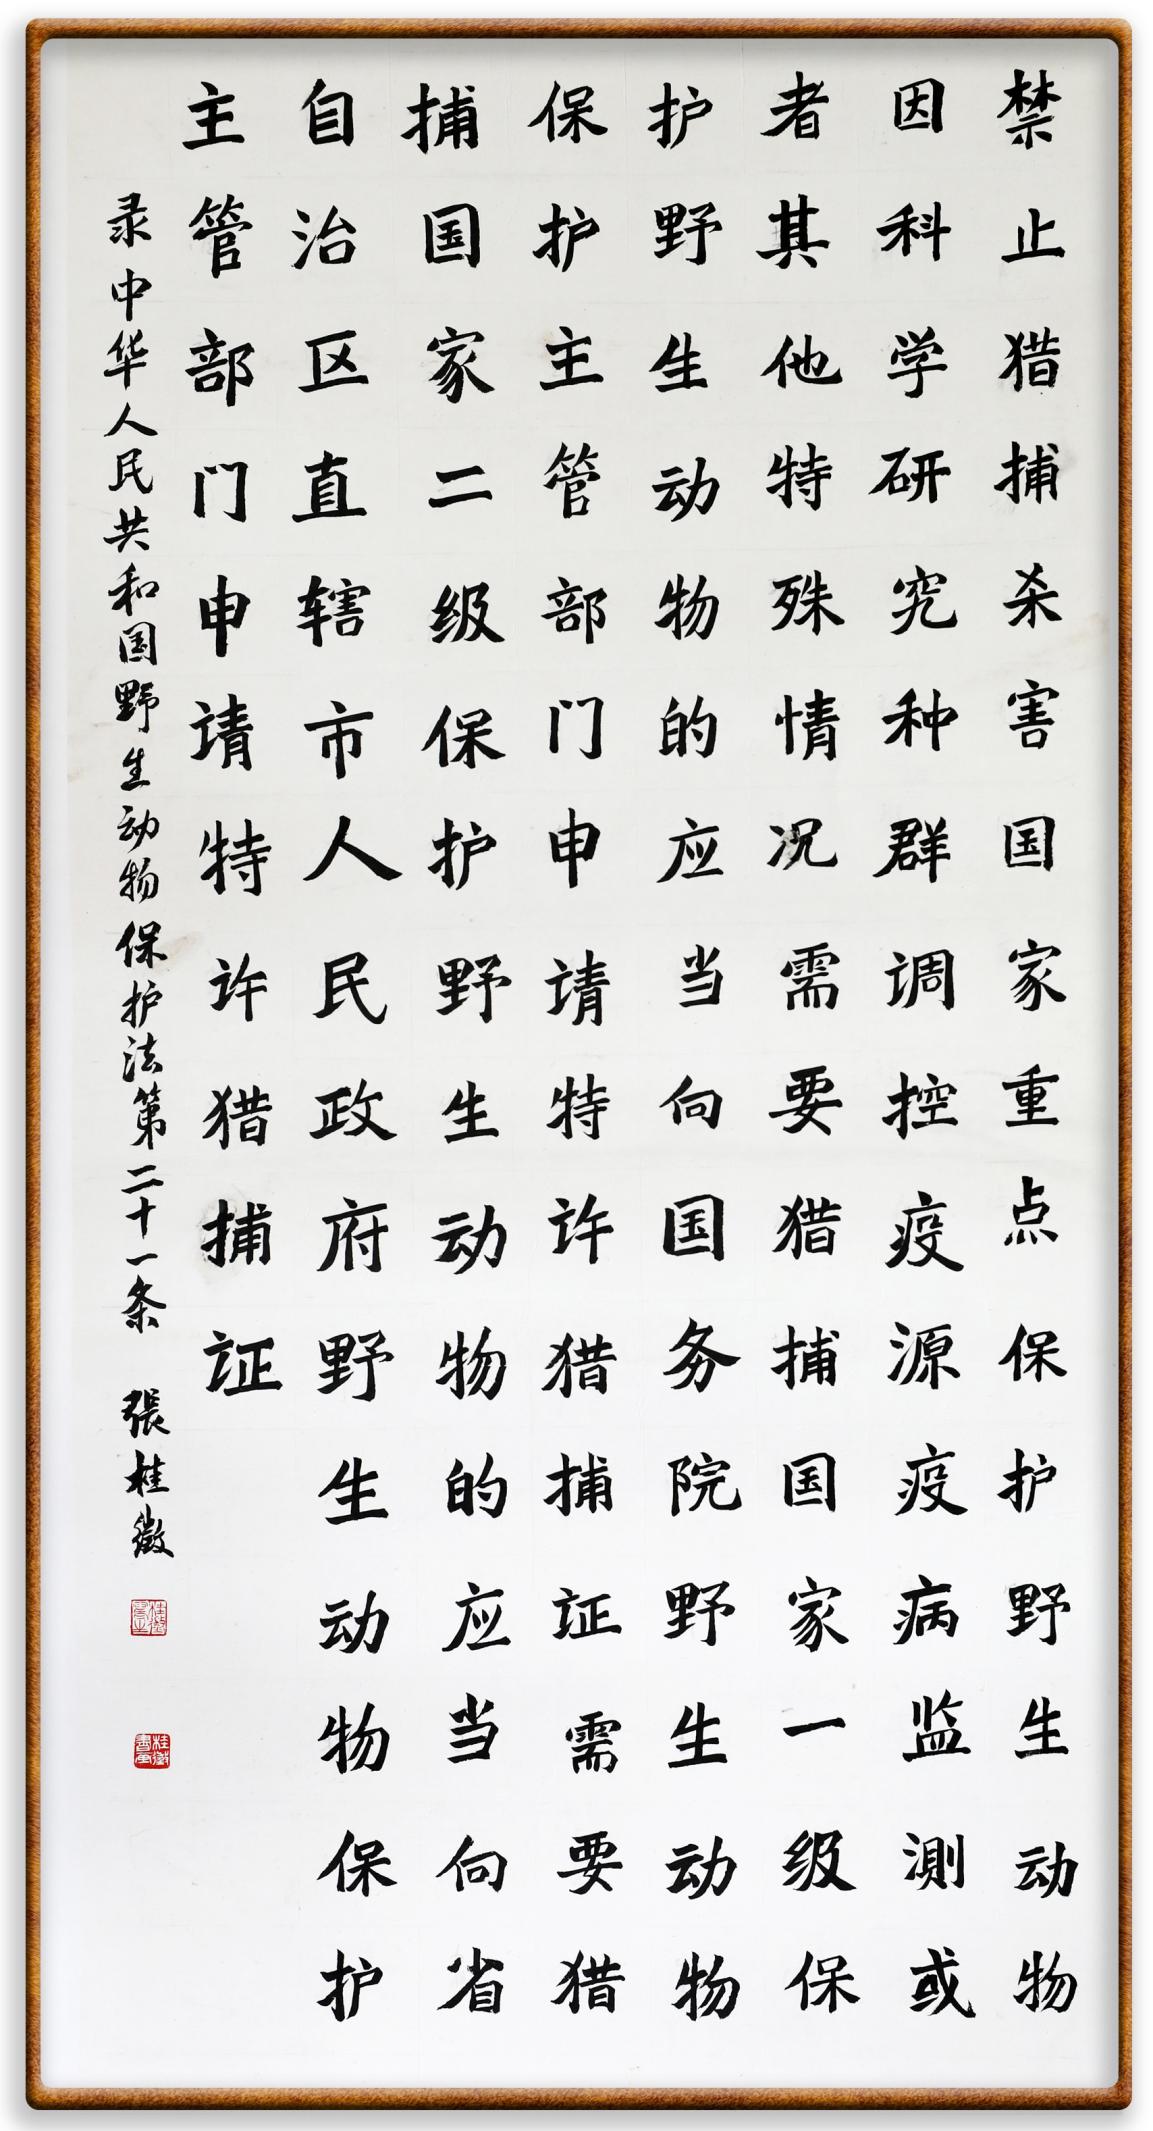 禁止猎捕杀害国家重点保护野生动物
因科学研究种群调控疫源疫病监测或
者其他特殊情况需要猎捕国家一级保
护野生动物的应当向国务院野生动物
保护主管部门申请特许猎捕证需要猎
捕国家二级保护野生动物的应当向省
自治区直辖市人民政府野生动物保护
主管部门申请特许猎捕证
录中华人民共和国野生动物保护法第二十一条 張桂徵